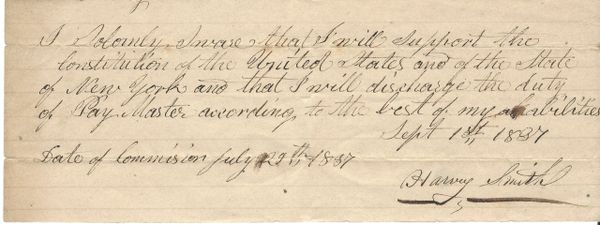 I Solomly Sware that I will support the
Constitution of the United States and of the State
of New York and that I will discharge the duty
of Pay Master according, to the best of my abilities
Sept 1st 1837
Date of Commission July 29th 1837
Harvey Smith